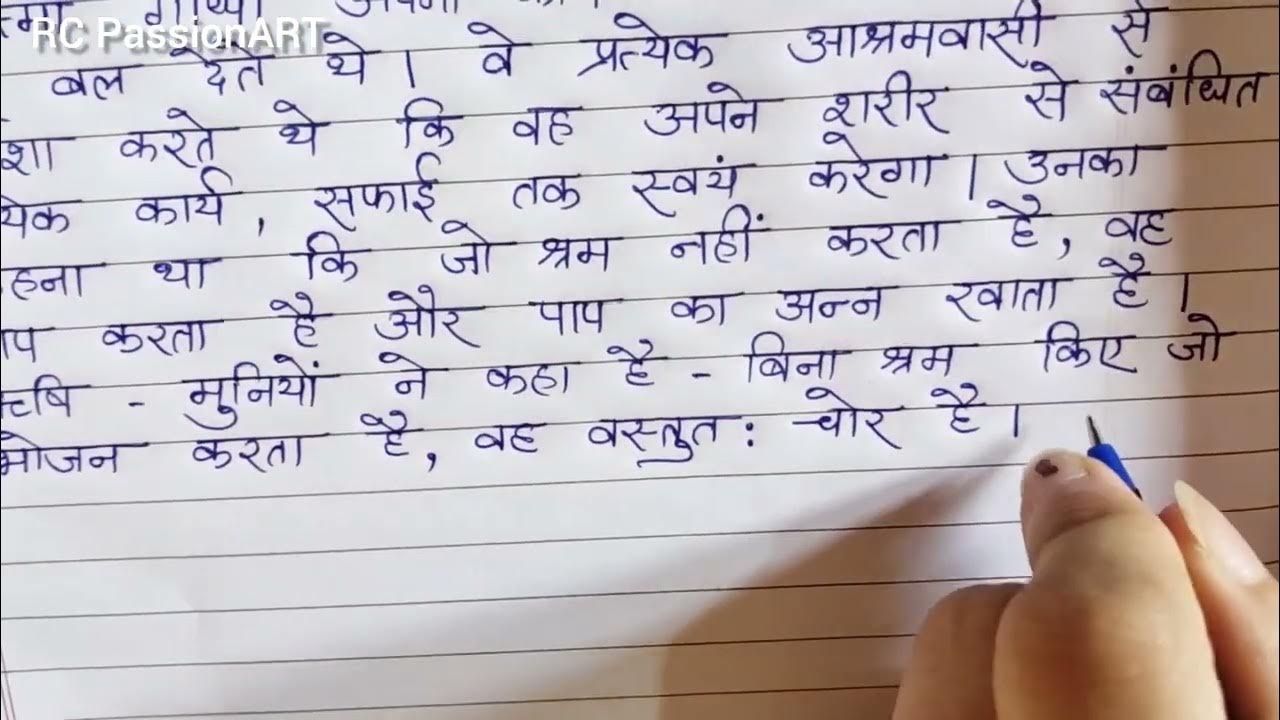 RC PassionART
बल देते थे। वे प्रत्येक आश्रमवासी से
शा करते थे कि वह अपने शरीर से संबंधित
येक कार्य, सफाई तक स्वयं करेगा। उनका
हना था कि जो श्रम नहीं करता है, वह
ाप करता है और पाप का अन्न खाता है।
ऋषि - मुनियों ने कहा है - बिना श्रम किए जो
भोजन करता है, वह वस्तुत: चोर है।